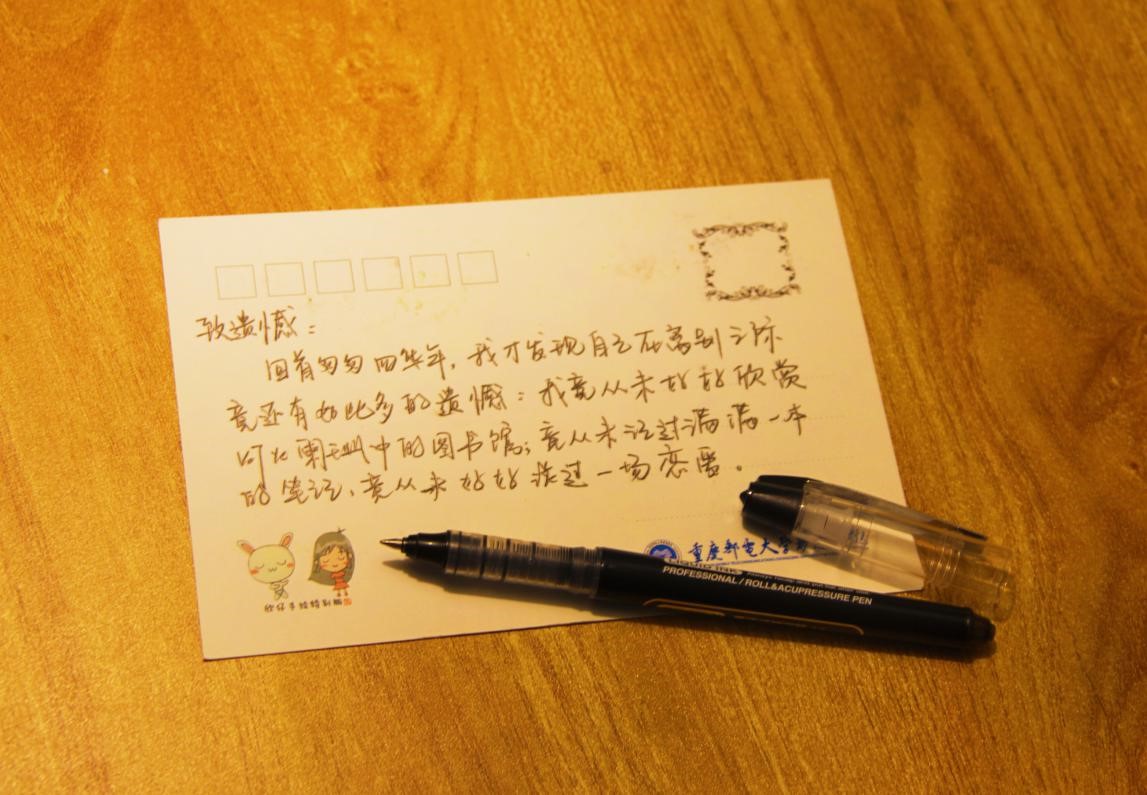 致遗憾：
回首匆匆四华年，我才发现自己在离别之际
竟还有如此多的遗憾：我竟从未好好欣赏
中的图书馆；竟从未记过满满一本
的笔记、竟从未好好谈过一场恋爱。
欣仔手绘特别版
重庆邮电大学
PROFESSIONAL / ROLL&ACUPRESSURE PEN